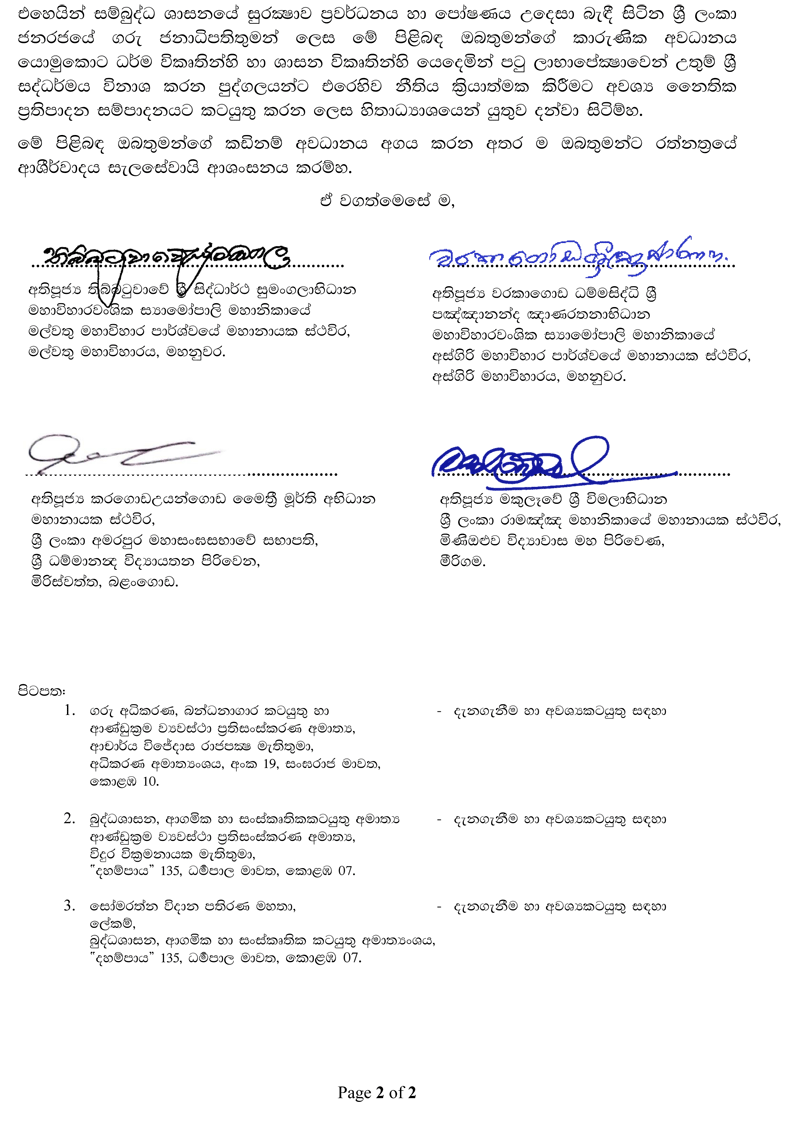 එහෙයින් සම්බුද්ධ ශාසනයේ සුරක්‍ෂාව ප්‍රවර්ධනය හා පෝෂණය උදෙසා බැඳී සිටින ශ්‍රී ලංකා
ජනරජයේ ගරු ජනාධිපතිතුමන් ලෙස මේ පිළිබඳ ඔබතුමන්ගේ කාරුණික අවධානය
යොමුකොට ධර්ම විකෘතින්හි හා ශාසන විකෘතින්හි යෙදෙමින් පටු ලාභාපේක්‍ෂාවෙන් උතුම් ශ්‍රී
සද්ධර්මය විනාශ කරන පුද්ගලයන්ට එරෙහිව නීතිය ක්‍රියාත්මක කිරීමට අවශ්‍ය නෛතික
ප්‍රතිපාදන සම්පාදනයට කටයුතු කරන ලෙස හිතාධ්‍යාශයෙන් යුතුව දන්වා සිටිම්හ.
මේ පිළිබඳ ඔබතුමන්ගේ කඩිනම් අවධානය අගය කරන අතර ම ඔබතුමන්ට රත්නත්‍රයේ
ආශීර්වාදය සැලසේවායි ආශංසනය කරම්හ.
ඒ වගත්මෙසේ ම,
අතිපූජ්‍ය තිබ්බටුවාවේ ශ්‍රී සිද්ධාර්ථ සුමංගලාභිධාන
මහාවිහාරවංශික ස්‍යාමෝපාලි මහානිකායේ
මල්වතු මහාවිහාර පාර්ශ්වයේ මහානායක ස්ථවිර,
මල්වතු මහාවිහාරය, මහනුවර.
අතිපූජ්‍ය වරකාගොඩ ධම්මසිද්ධි ශ්‍රී
පඤ්ඤානන්ද ඤාණරතනාභිධාන
මහාවිහාරවංශික ස්‍යාමෝපාලි මහානිකායේ
අස්ගිරි මහාවිහාර පාර්ශ්වයේ මහානායක ස්ථවිර,
අස්ගිරි මහාවිහාරය, මහනුවර.
අතිපූජ්‍ය කරගොඩඋයන්ගොඩ මෛත්‍රී මූර්ති අභිධාන
මහානායක ස්ථවිර,
ශ්‍රී ලංකා අමරපුර මහාසංඝසභාවේ සභාපති,
ශ්‍රී ධම්මානන්‍ද විද්‍යායතන පිරිවෙන,
මිරිස්වත්ත, බළංගොඩ.
අතිපූජ්‍ය මකුලෑවේ ශ්‍රී විමලාභිධාන
ශ්‍රී ලංකා රාමඤ්ඤ මහානිකායේ මහානායක ස්ථවිර,
මිණිඔළුව විද්‍යාවාස මහ පිරිවෙණ,
මීරිගම.
පිටපත:
1. ගරු අධිකරණ, බන්ධනාගාර කටයුතු හා - දැනගැනීම හා අවශ්‍යකටයුතු සඳහා
ආණ්ඩුක්‍රම ව්‍යවස්ථා ප්‍රතිසංස්කරණ අමාත්‍ය,
ආචාර්ය විජේදාස රාජපක්‍ෂ මැතිතුමා,
අධිකරණ අමාත්‍යංශය, අංක 19, සංඝරාජ මාවත,
කොළඹ 10.
2. බුද්ධශාසන, ආගමික හා සංස්කෘතිකකටයුතු අමාත්‍ය - දැනගැනීම හා අවශ්‍යකටයුතු සඳහා
ආණ්ඩුක්‍රම ව්‍යවස්ථා ප්‍රතිසංස්කරණ අමාත්‍ය,
විදුර වික්‍රමනායක මැතිතුමා,
"දහම්පාය" 135, ධර්‍මපාල මාවත, කොළඹ 07.
3. සෝමරත්න විදාන පතිරණ මහතා, - දැනගැනීම හා අවශ්‍යකටයුතු සඳහා
ලේකම්,
බුද්ධශාසන, ආගමික හා සංස්කෘතික කටයුතු අමාත්‍යංශය,
"දහම්පාය" 135, ධර්‍මපාල මාවත, කොළඹ 07.
Page 2 of 2